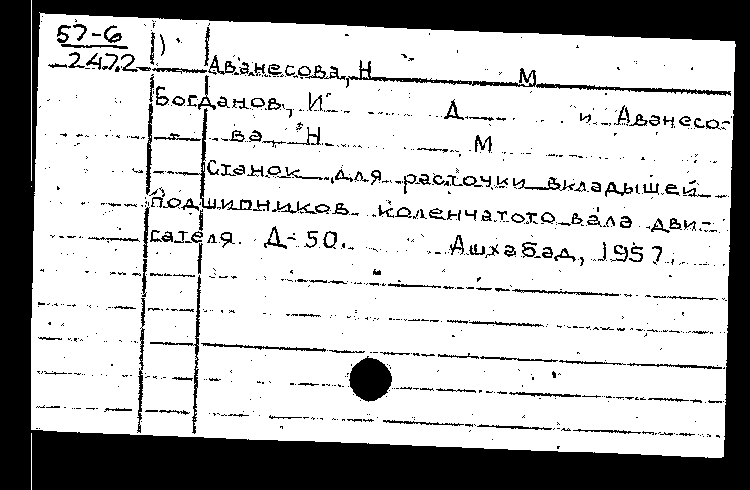 57-6
2472
Аванесова, Н М
Богданов, И Д и Аванесо-
ва, Н М
Станок для расточки вкладышей
подшипников коленчатого вала дви-
гателя Д-50. Ашхабад, 1957.